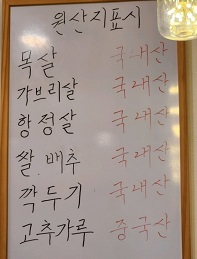 원산지표시
목살 국내산
가브리살 국내산
항정살 국내산
쌀. 배추 국내산
깍두기 국내산
고추가루 중국산